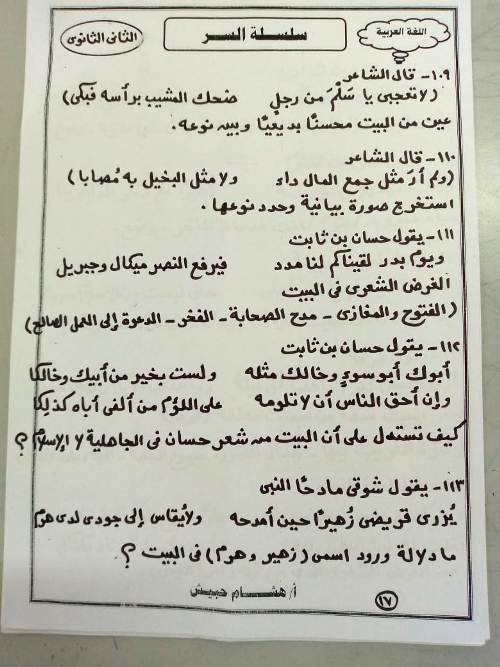 اللغة العربية
سلسلة السر
الثانى الثانوى
١٠٩- قال الشاعر
(لا تعجبى يا سَلْمَ من رجلٍ ضحك المشيب برأسه فبكى)
عين من البيت محسنًا بديعيًا وبين نوعه.
١١٠- قال الشاعر
(ولم أرَ مثل جمع المال داء ولا مثل البخيل به مُصابا)
استخرج صورة بيانية وحدد نوعها.
١١١- يقول حسان بن ثابت
ويوم بدر لقيناكم لنا مدد فيرفع النصر ميكال وجبريل
الغرض الشعرى فى البيت
(الفتوح والمغازى - مدح الصحابة - الفخر - الدعوة إلى العمل الصالح)
١١٢- يقول حسان بن ثابت
أبوك أبو سوءٍ وخالك مثله ولست بخير من أبيك وخالكا
وإن أحق الناس أن لا تلومه على اللؤم من ألفى أباه كذلِكا
كيف تستدل على أن البيت من شعر حسان فى الجاهلية لا الإسلام؟
١١٣- يقول شوقى مادحًا النبى
يُزرى قريضى زُهيرًا حين أمدحه ولا يُقاس إلى جودى لدى هرم
ما دلالة ورود اسمى (زهير وهرم) فى البيت؟
أ/ هشام حبيش
١٧